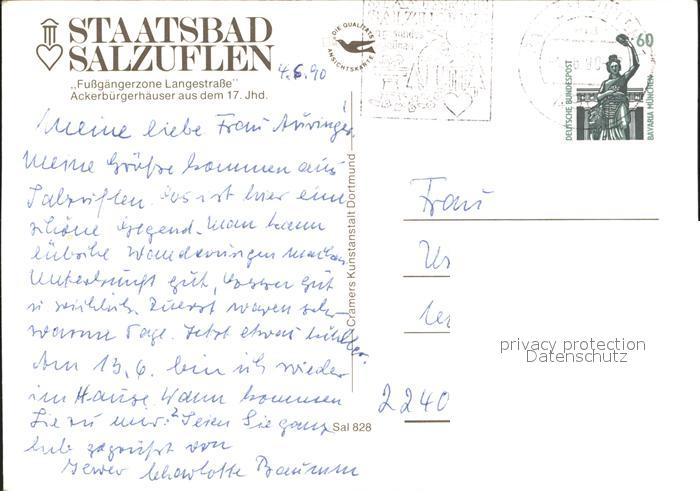 STAATSBAD
SALZUFLEN
„Fußgängerzone Langestraße"
Ackerbürgerhäuser aus dem 17. Jhd.
4.6.90
DIE QUALITÄTS
ANSICHTSKARTE
60
DEUTSCHE BUNDESPOST
BAVARIA MÜNCHEN
Meine liebe Frau
Meine Grüße kommen aus
Salzuflen. Das ist hier eine
schöne Gegend. Man kann
hübsche Wanderungen machen.
Unterkunft gut, Essen gut
u. reichlich. Zuerst waren sehr
warme Tage. Jetzt etwas kühler.
Am 13.6. bin ich wieder
im Hause. Wann kommen
Sie zu mir? Seien Sie ganz
lieb gegrüßt von
Ihrer Charlotte
Cramers Kunstanstalt Dortmund
Sal 828
Frau
2240
privacy protection
Datenschutz